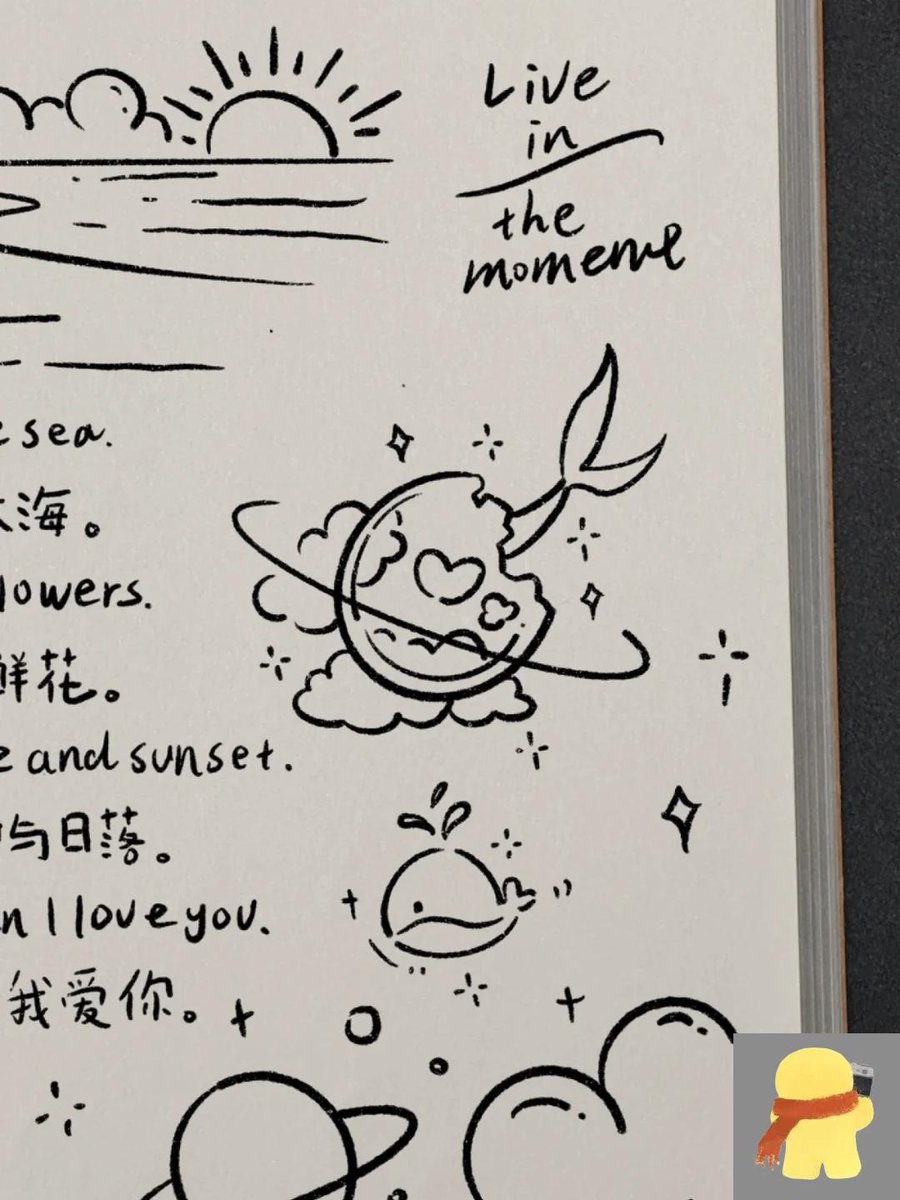 Live
in
the
moment
sea.
海。
lowers.
鲜花。
and sunset.
与日落。
I love you.
我爱你。